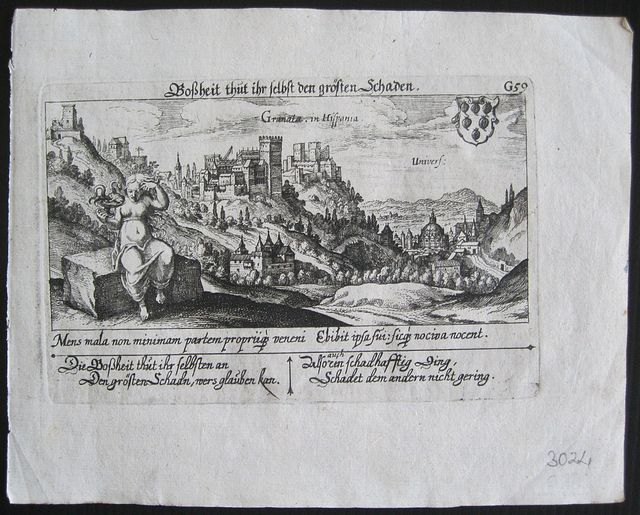 Boßheit thut ihr selbst den grösten Schaden.
G59
Granata in Hispania
Univers:
Mens mala non minimam partem propriiq́; veneni Ebibit ipsa sui: sicq́; nociva nocent.
Die Boßheit thut ihr selbsten an
Den grösten Schadn, wers glauben kan.
auch
schadhafftig Ding,
Schadet dem andern nicht gering.
3024